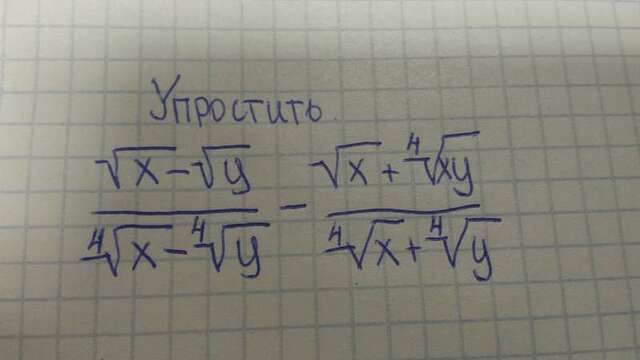 Упростить.
\frac{\sqrt{x}-\sqrt{y}}{\sqrt[4]{x}-\sqrt[4]{y}} - \frac{\sqrt{x}+\sqrt[4]{xy}}{\sqrt[4]{x}+\sqrt[4]{y}}